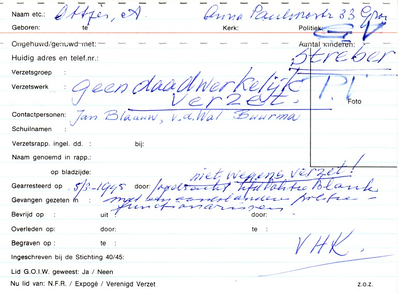 Naam etc.: Ottjes, A Anna Paulownastr 33 Gron
Geboren: te Kerk: Politiek:
Ongehuwd/gehuwd met: Aantal kinderen:
Huidig adres en telef.nr.: Streber
Verzetsgroep :
Verzetswerk : geen daadwerkelijk
verzet.
Foto
Contactpersonen: Jan Blaauw, v.d. Wal Buurma
Schuilnaam :
Verzetsrapp. ingel. dd. : bij:
Naam genoemd in rapp.:
op bladzijde: niet wegens verzet!
Gearresteerd op : 8/3-1945 door: Blank
Gevangen gezeten in : met en anderen politie-
functionarissen.
Bevrijd op : uit : door:
Overleden op : door: te :
Begraven op : te : VHK.
Ingeschreven bij de Stichting 40/45:
Lid G.O.I.W. geweest: Ja / Neen
Nu lid van: N.F.R. / Expogé / Verenigd Verzet z.o.z.